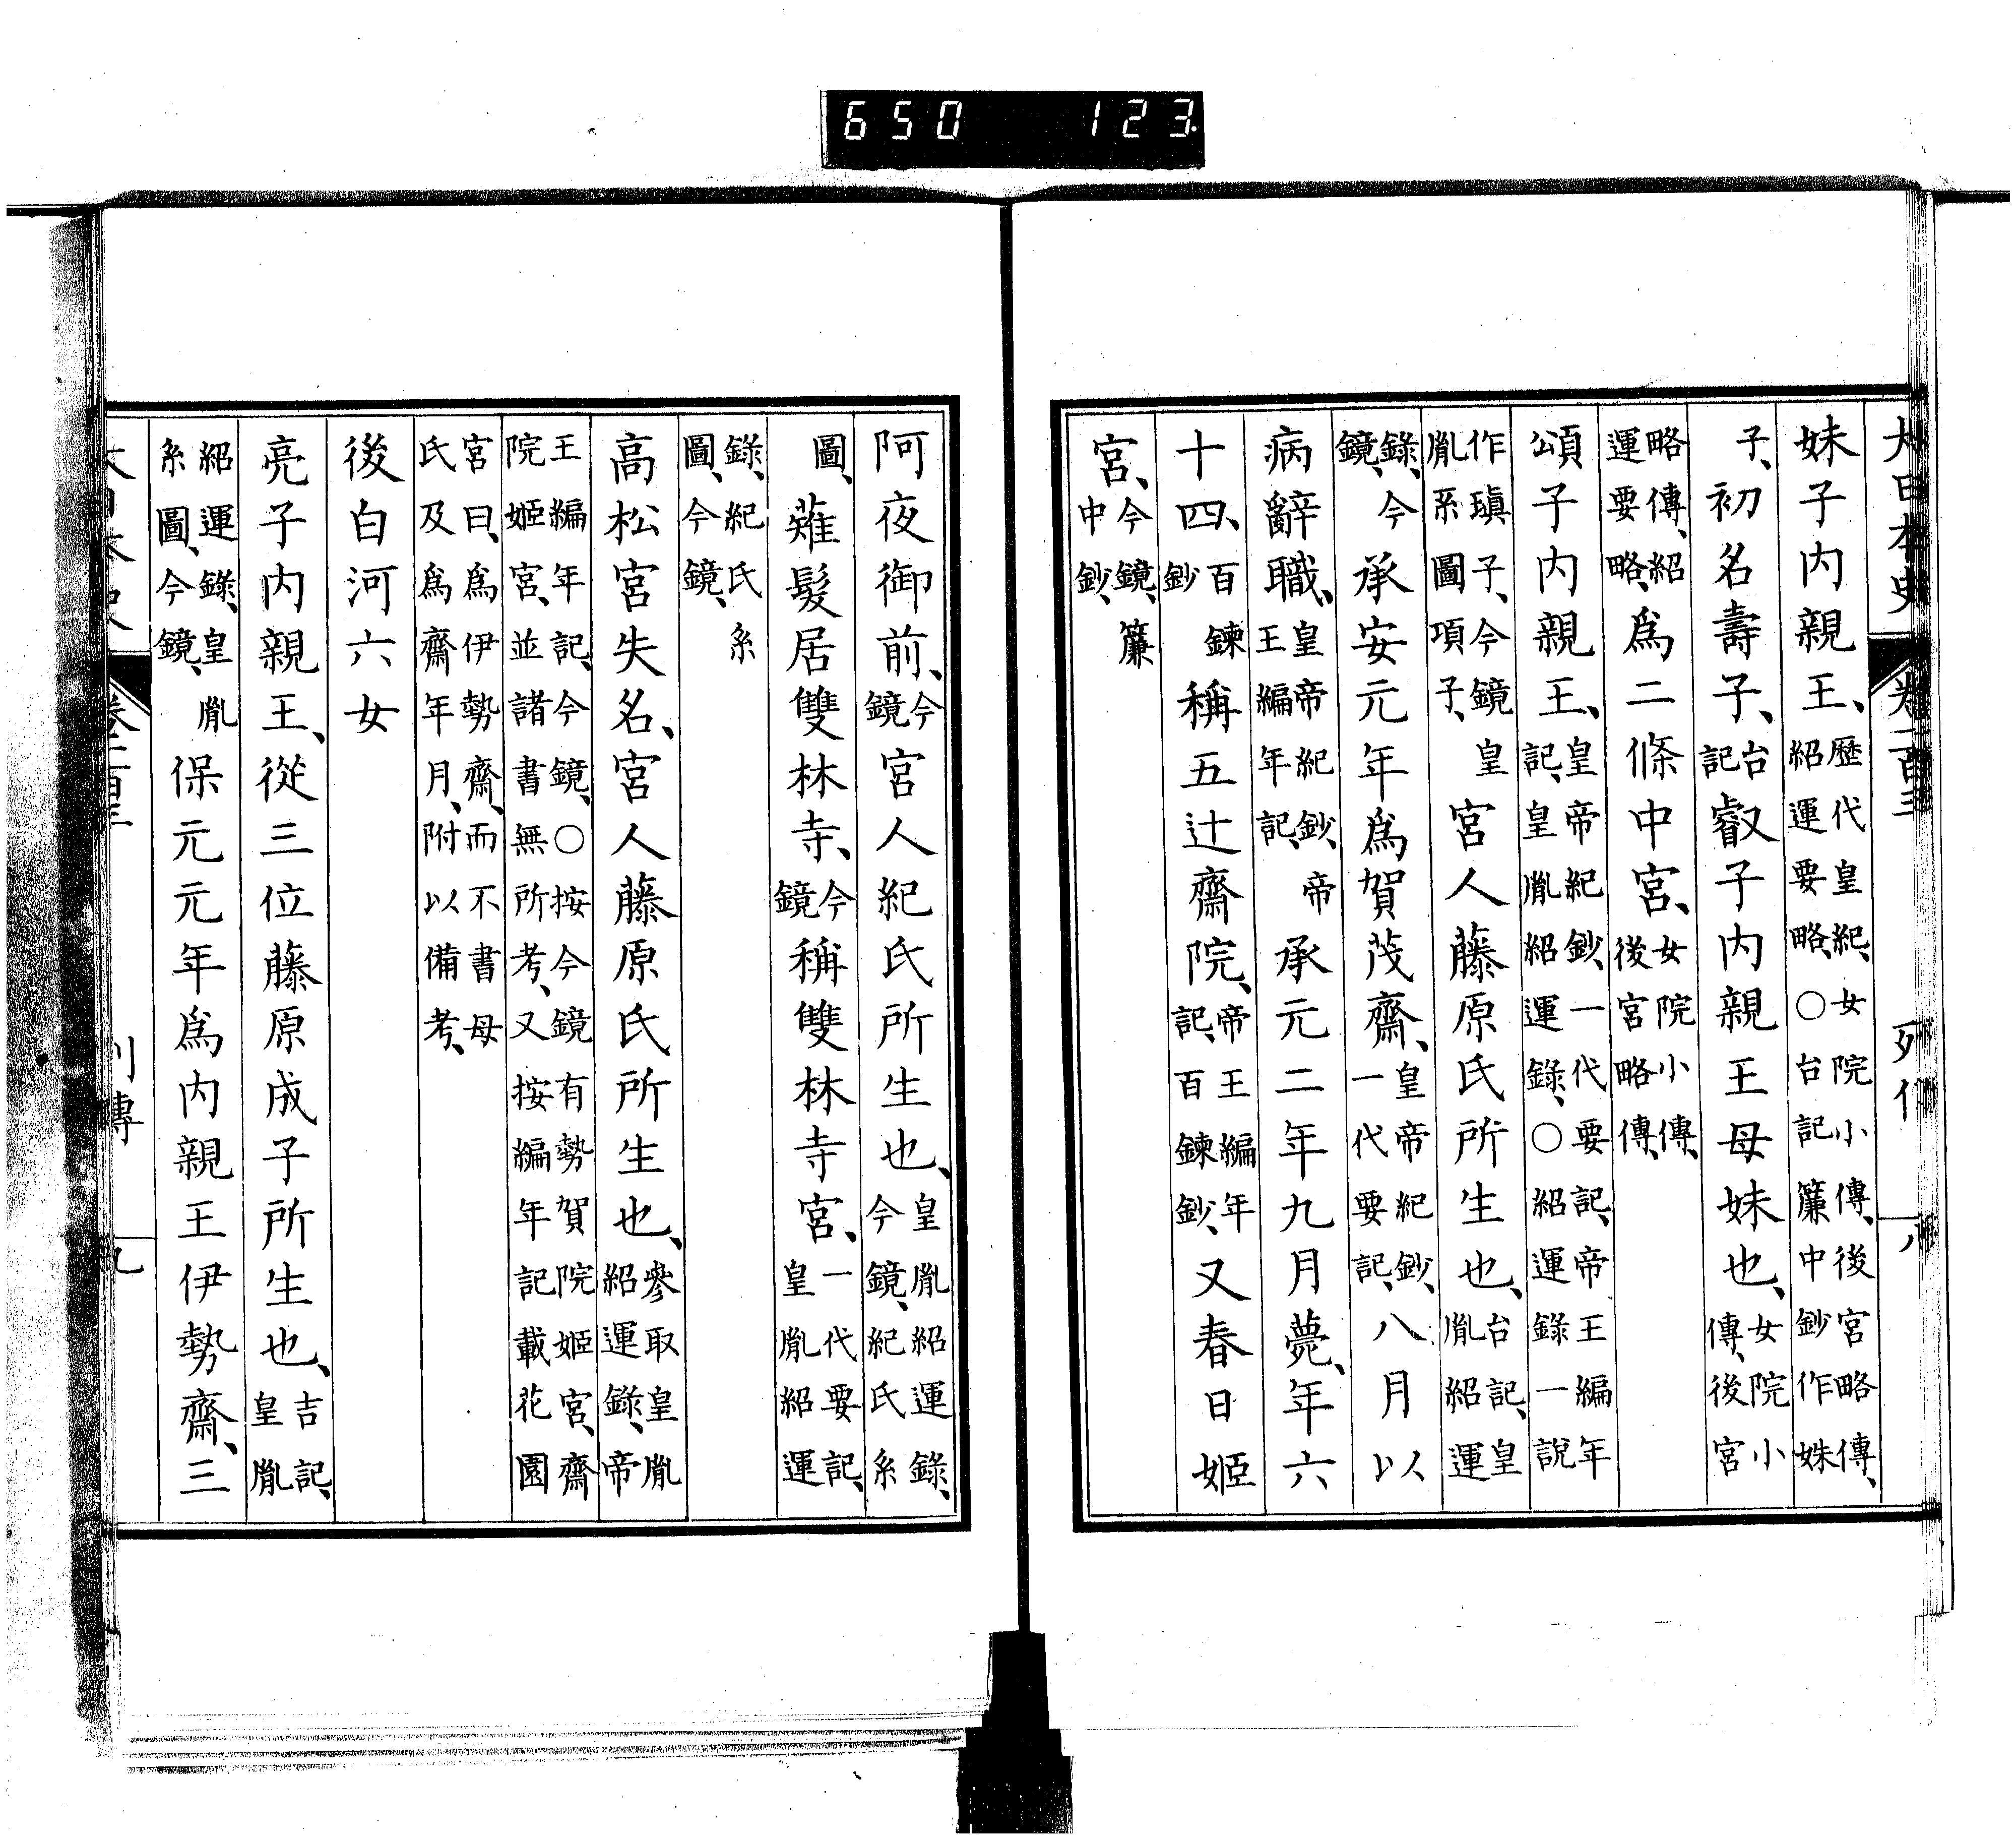 650 123
大日本史 卷二百三 列傳 八
妹子内親王、歷代皇紀、女院小傳、後宮略傳、紹運要略、○台記簾中鈔作姝
子、初名壽子、台記叡子内親王母妹也、女院小傳、後宮
略傳、紹運要略、爲二條中宮、女院小傳、後宮略傳、
頌子内親王、皇帝紀鈔、一代要記、帝王編年記、皇胤紹運錄、○紹運錄一說
作瑱子、今鏡皇胤系圖項子、宮人藤原氏所生也、台記、皇胤紹運
錄、今鏡、承安元年爲賀茂齋、皇帝紀鈔、一代要記、八月以
病辭職、皇帝紀鈔、帝王編年記、承元二年九月薨、年六
十四、百鍊鈔稱五辻齋院、帝王編年記、百鍊鈔、又春日姬
宮、今鏡、簾中鈔、
阿夜御前、今鏡宮人紀氏所生也、皇胤紹運錄、今鏡、紀氏系
圖、薙髮居雙林寺、今鏡稱雙林寺宮、一代要記、皇胤紹運
錄、紀氏系圖、今鏡、
高松宮失名、宮人藤原氏所生也、參取皇胤紹運錄、帝
王編年記、今鏡、○按今鏡有勢賀院姬宮、齋院姬宮、並諸書無所考、又按編年記載花園
宮曰、爲伊勢齋、而不書母氏及爲齋年月、附以備考、
後白河六女
亮子内親王、從三位藤原成子所生也、吉記、皇胤
紹運錄、皇胤系圖、今鏡、保元元年爲内親王伊勢齋、三
卷二百三 列傳 九